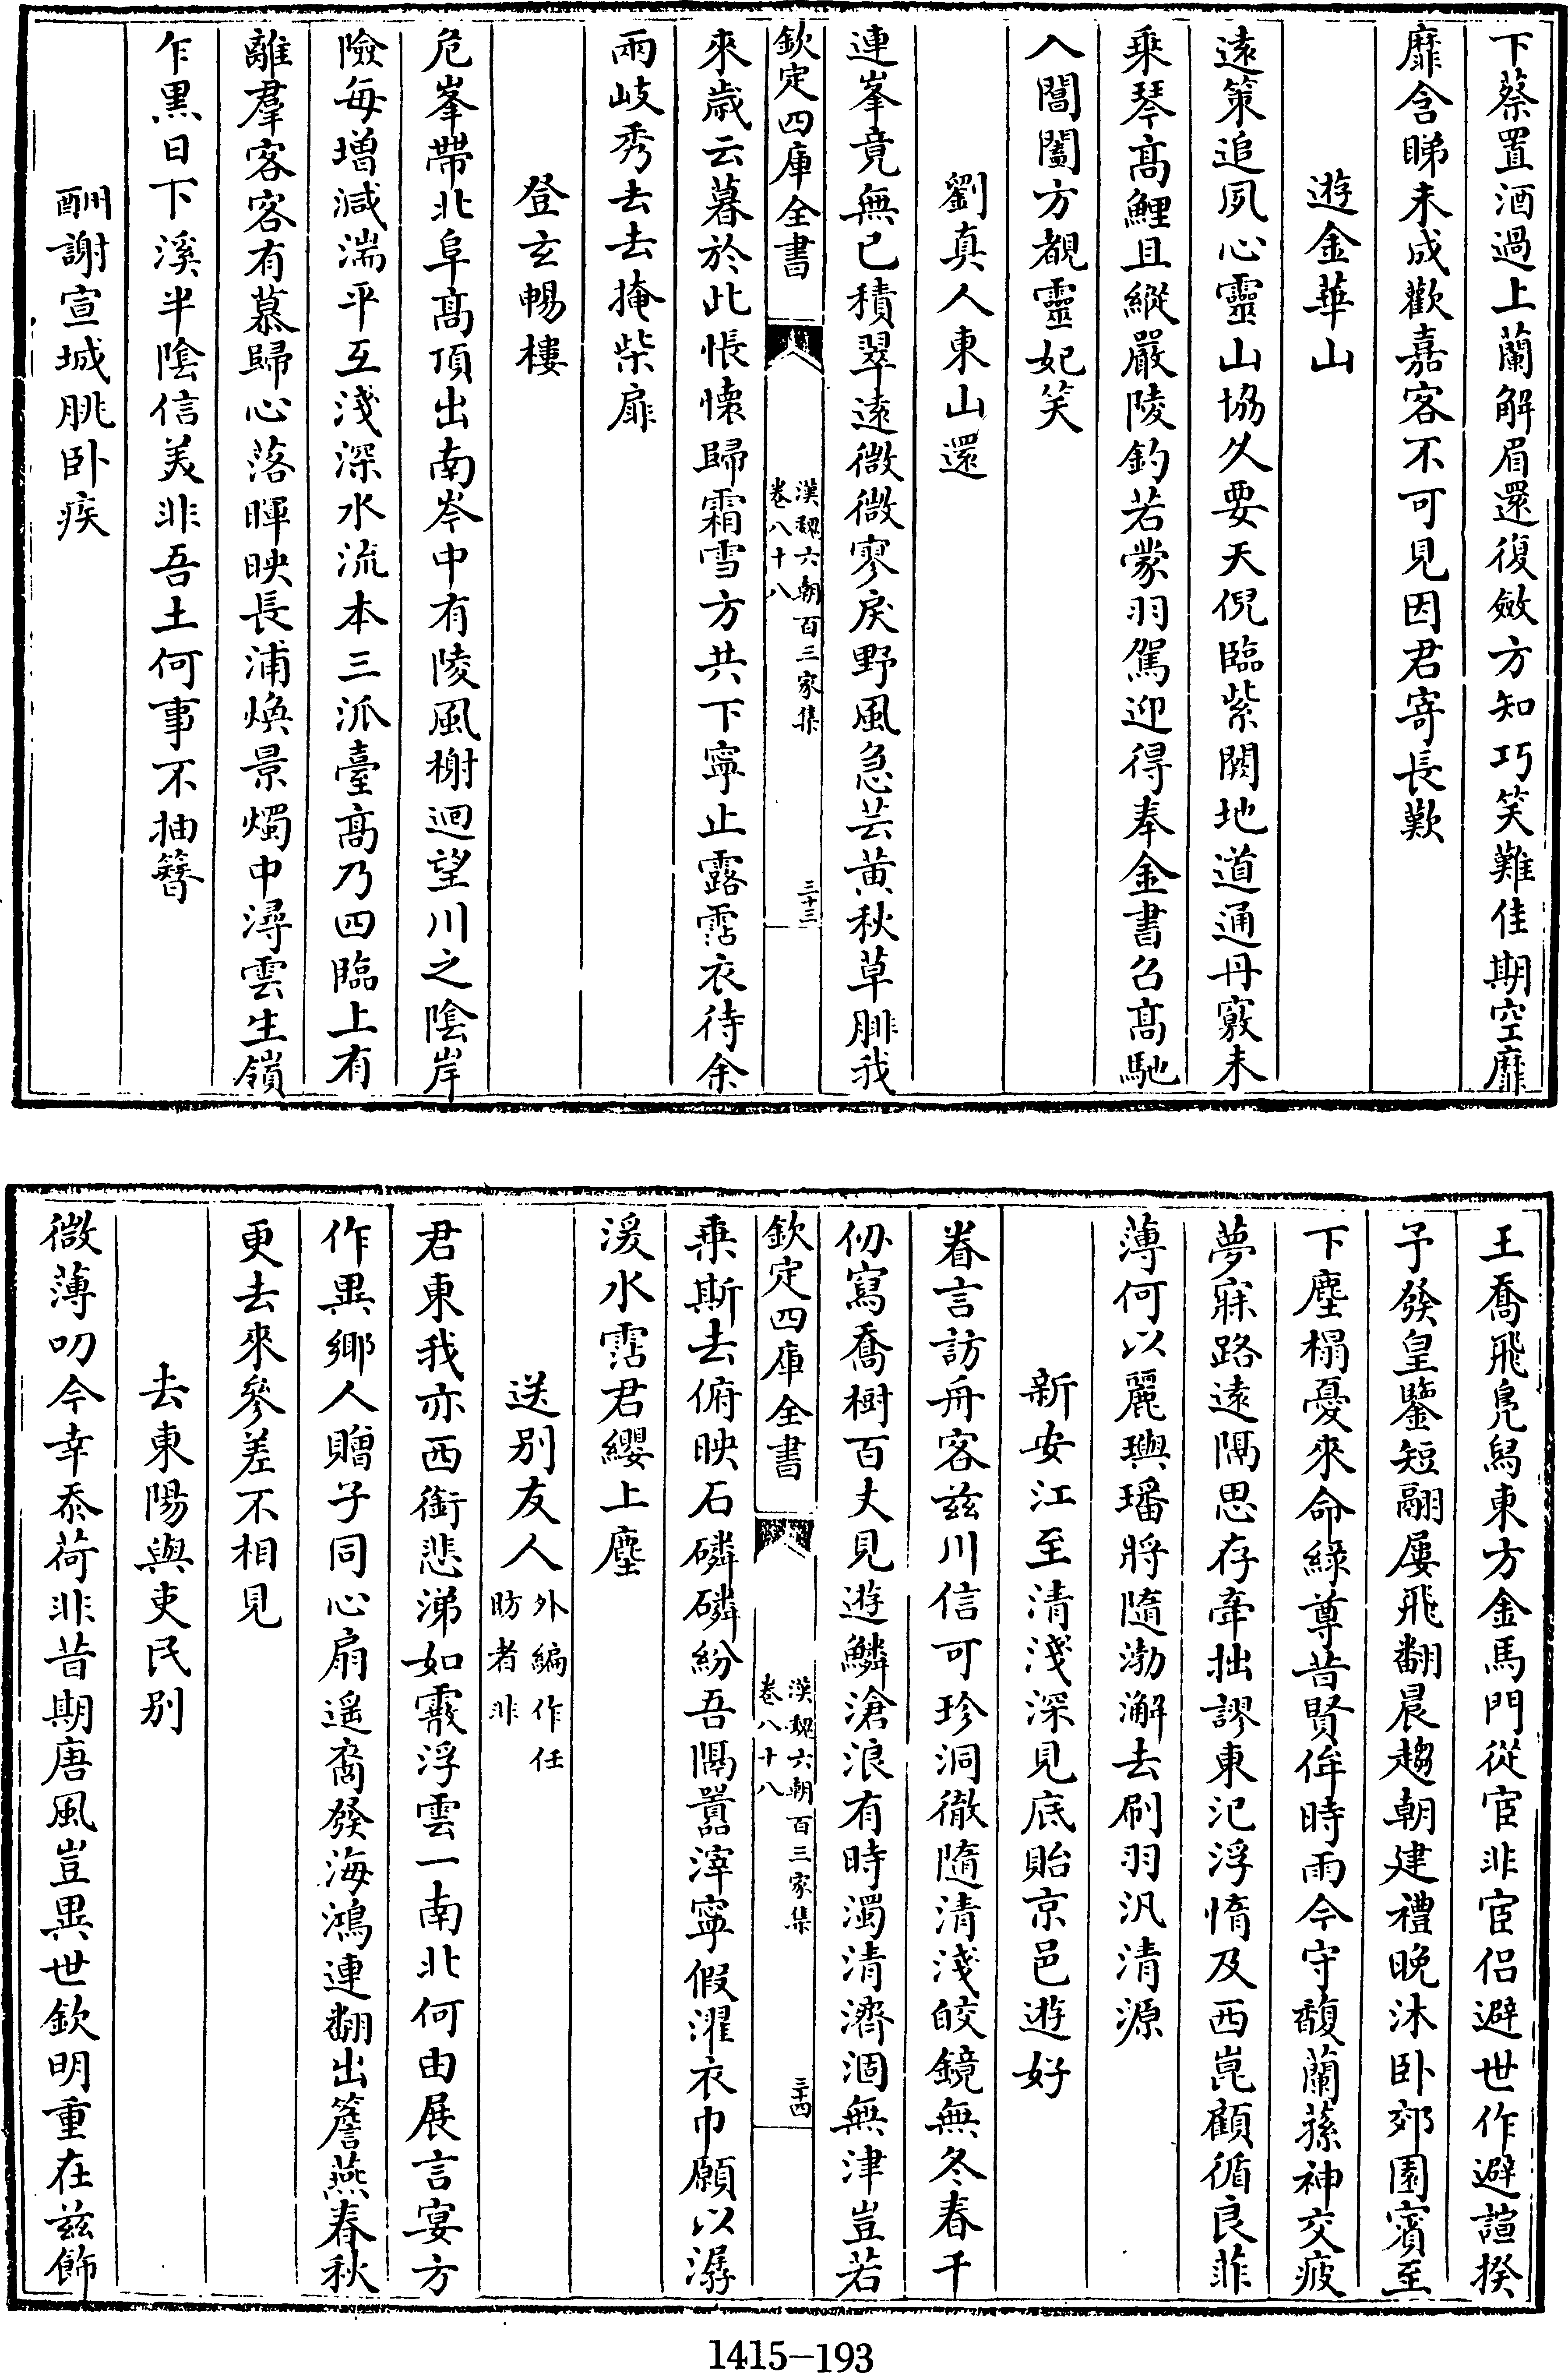 下蔡置酒過上蘭解眉還復斂方知巧笑難佳期空靡
靡含睇未成歡嘉客不可見因君寄長歎
遊金華山
遠策追夙心靈山協久要天倪臨紫闕地道通丹竅未
乗琴髙鯉且縱嚴陵釣若蒙羽駕迎得奉金書召髙馳
入閶闔方覩靈妃笑
劉真人東山還
連峯竟無已積翠遠微微寥戾野風急芸黄秋草腓我
欽定四庫全書
漢魏六朝百三家集
卷八十八
三十三
來歳云暮於此悵懷歸霜雪方共下寧止露霑衣待余
兩岐秀去去掩柴扉
登玄暢樓
危峯帶北阜髙頂出南岑中有陵風榭迴望川之隂岸
險每增減湍平互淺深水流本三派臺髙乃四臨上有
離羣客客有慕歸心落暉映長浦煥景燭中潯雲生嶺
乍黒日下溪半隂信美非吾土何事不抽簪
酬謝宣城朓卧疾
王喬飛鳬舄東方金馬門從宦非宦侣避世作避諠揆
予發皇鑒短翮屢飛翻晨趨朝建禮晚沐卧郊園賔至
下塵榻憂來命綠尊昔賢侔時雨今守馥蘭蓀神交疲
夢寐路遠隔思存牽拙謬東汜浮惰及西崑顧循良菲
薄何以麗璵璠將隨渤澥去刷羽汎清源
新安江至清淺深見底貽京邑遊好
眷言訪舟客兹川信可珍洞徹隨清淺皎鏡無冬春千
仞寫喬樹百丈見遊鱗滄浪有時濁清濟涸無津豈若
欽定四庫全書
漢魏六朝百三家集
卷八十八
三十四
乗斯去俯映石磷磷紛吾隔囂滓寧假濯衣巾願以潺
湲水霑君纓上塵
送别友人外編作任昉者非
君東我亦西銜悲涕如霰浮雲一南北何由展言宴方
作異鄉人贈子同心扇遥裔發海鴻連翻出簷燕春秋
更去來參差不相見
去東陽與吏民别
微薄叨今幸忝荷非昔期唐風豈異世欽明重在兹飾
1415-193